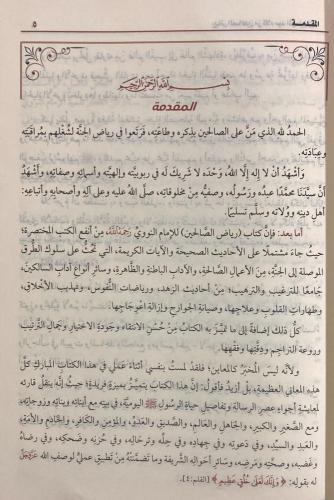 المقدمة
٥
بِسْمِ اللَّهِ الرَّحْمَنِ الرَّحِيمِ
المقدمة
الحمدُ لله الذي مَنَّ على الصالحين بذكره وطاعتِه، فَرَتَعوا في رياض الجنَّة لشُغْلِهم بمُراقبَتِه
وعِبادَتِه.
وَأَشْهَدُ أَنْ لا إله إلَّا اللهُ، وَحْدَه لا شريكَ له في ربوبيَّتِه وإلهيَّتِه وأسمائِه وصفاتِه، وأشْهَدُ
أنَّ سيِّدَنا محمَّدًا عبدُه ورسولُه، صفيُّه مِنْ مخلوقاتِه، صلَّى اللهُ عليه وعلى آلِه وأصحابِه وأتباعِه:
أهل دينِه وولاتِه وسلَّم تسليمًا.
أما بعد: فإن كتابَ (رياض الصَّالحين) للإمام النوويِّ رَحِمَهُ اللَّهُ: مِنْ أنفع الكتب المختصرة؛
حيثُ جاءَ مشتملًا على الأحاديث الصحيحة والآيات الكريمة، التي تحثُّ على سلوك الطُّرق
الموصلة إلى الجنَّة، مِنَ الأعمال الصَّالحة، والآداب الباطنة والظَّاهرة، وسائر أنواع آداب السالكين،
جامعًا للترغيب والترهيب؛ مِنْ أحاديث الزهد، ورياضات النُّفوس، وتهذيب الأخلاق،
وطهارات القلوب وعلاجِها، وصيانةِ الجوارح وإزالةِ اعْوِجاجِها.
كلُّ ذلك إضافةً إلى ما تميَّزَ به الكتابُ مِنْ حُسْنِ الانتقاء وجَودة الاختيار وجمالِ الترتيبِ
وروعة التراجم ودِقَّتِها وفقهِها.
ولأنَّه ليسَ المُخبَرُ كالمعاين؛ فلقد لمستُ بنفسي أثناءَ عَمَلي في هذا الكتاب المبارك كلَّ
هذه المعاني العظيمة، بل أزيدُ فأقولُ: إنَّ هذا الكتابَ يتميَّزُ بميزة فريدة؛ حيثُ إنَّه ينقل قارئه
ليعايشَ أجواءَ عصرِ الرسالة وتفاصيل حياةِ الرسولِ ﷺ اليوميَّة، في بيتِه مع أبنائِه وبناتِه وزوجاتِه،
ومع الصَّغير والكبير، والجاهل والعالم، والصَّديق والعدوِّ، والمؤمن والكافر، والخادم والأَمَة،
والعَبد والسيِّد، وفي دَعوتِه وفي جِهادِه وفي حِلِّه وترحالِه، وفي حُزنِه وضَحِكِه، وفي رضاهُ
وغَضَبِه، وصحَّتِه ومَرَضِه، وسائرِ أحوالِه الشريفة وما تضمَّنَتْهُ مِنْ تطبيقٍ عمليٍّ لوصفِ الله عَزَّوَجَلَّ
له بقولِه: ﴿وَإِنَّكَ لَعَلَى خُلُقٍ عَظِيمٍ﴾ [القلم: ٤].